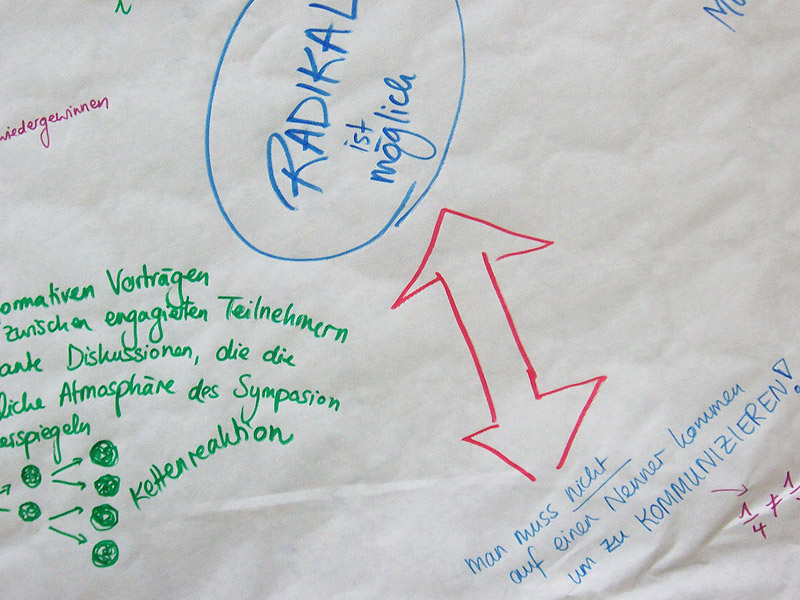 RADIKAL
ist
möglich
wiedergewinnen
ormativen Vorträgen
zwischen engagierten Teilnehmern
ante Diskussionen, die die
liche Atmosphäre des Symposion
erspiegeln
Kettenreaktion
man muss nicht
auf einen Nenner kommen
um zu KOMMUNIZIEREN!
1/4 ≠ 1